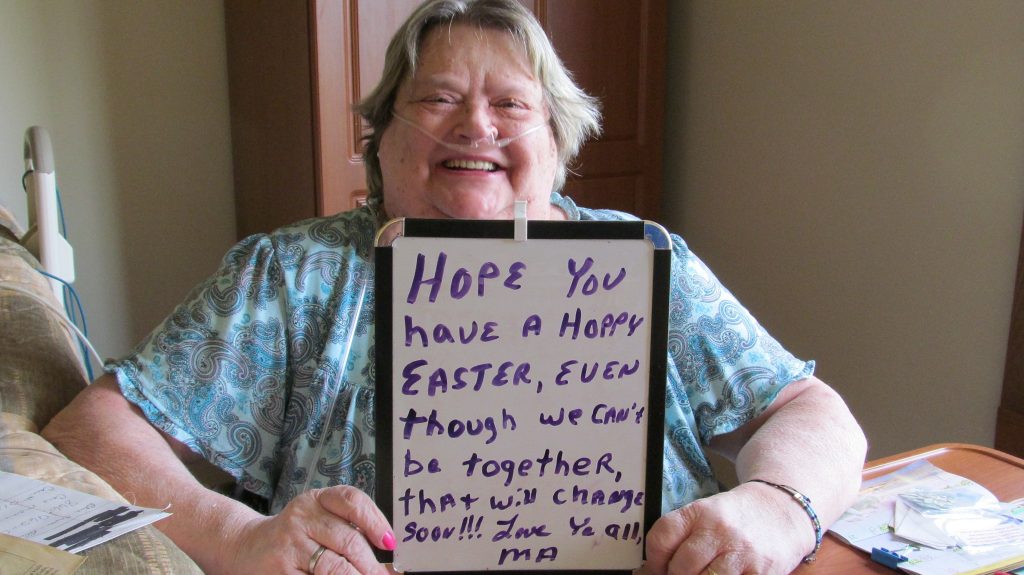 HOPE YOU
have A HOPPY
EASTER, EVEN
though we CAN't
be together,
that will change
soon!!! Love Ya all,
MA